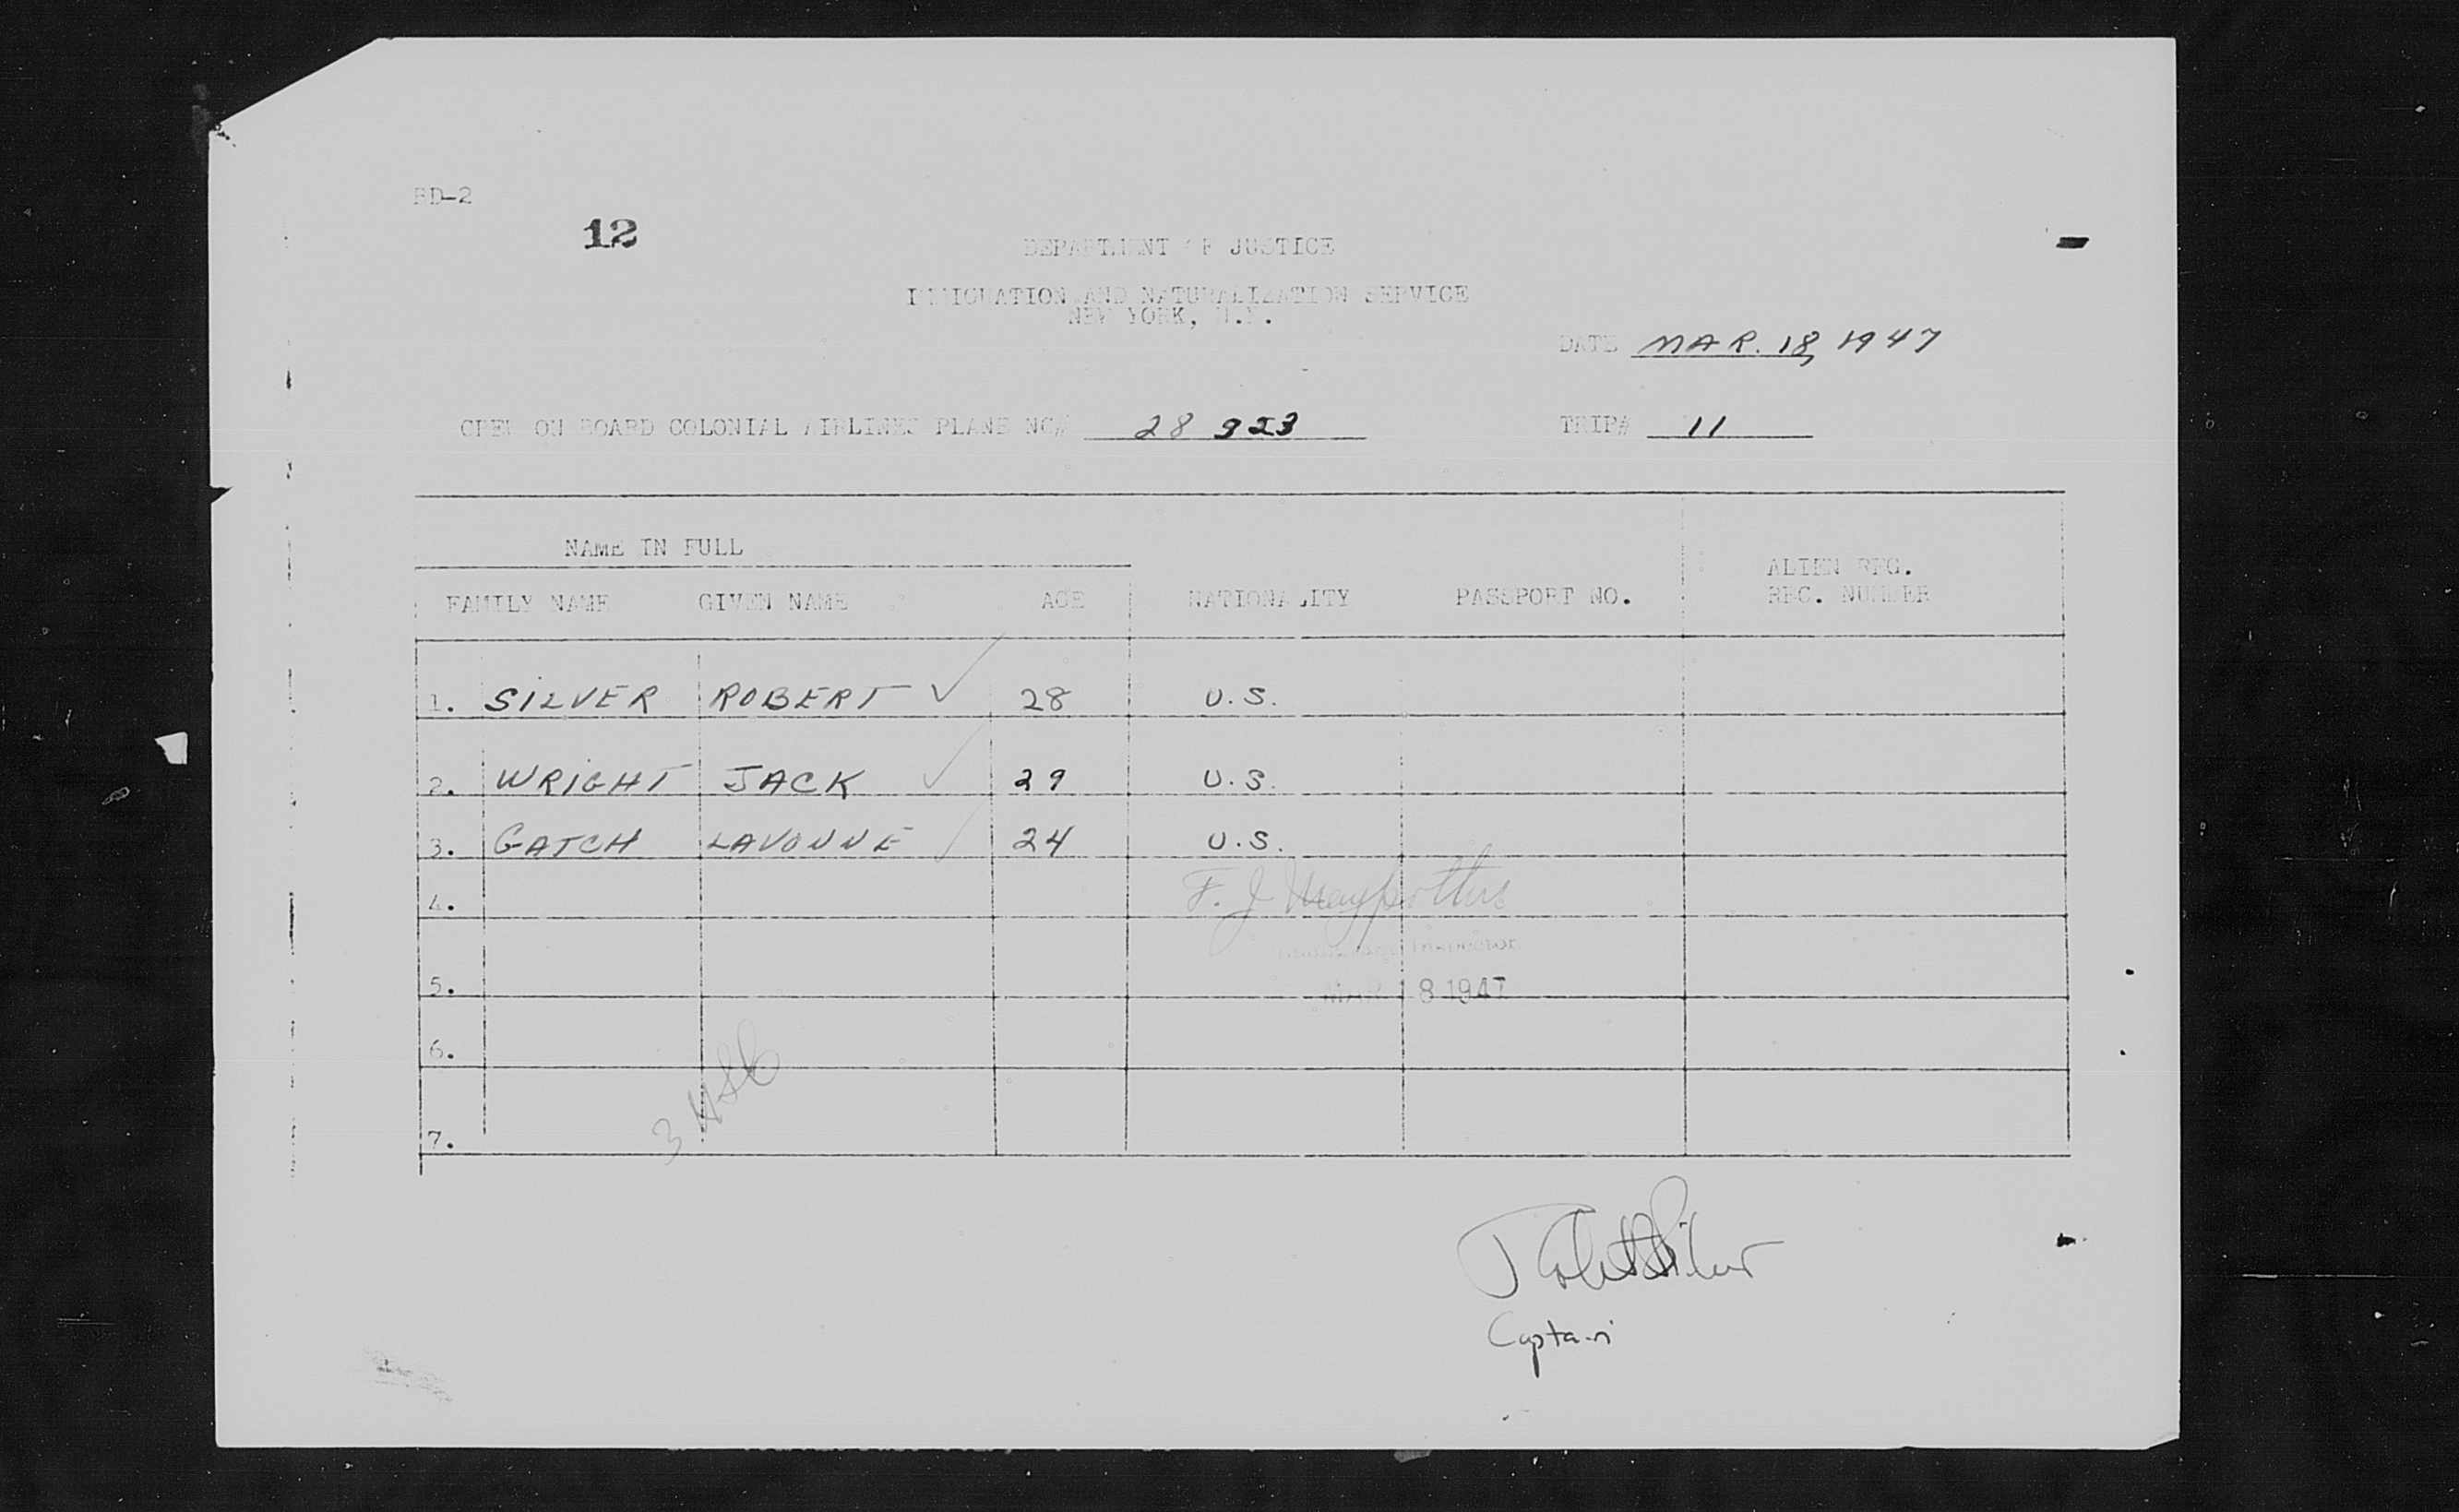 BD-2
12
DEPARTMENT OF JUSTICE
IMMIGRATION AND NATURALIZATION SERVICE
NEW YORK, N.Y.
DATE MAR. 18, 1947
CREW ON BOARD COLONIAL AIRLINES PLANE NC# 28 923 TRIP# 11
NAME IN FULL
FAMILY NAME GIVEN NAME AGE NATIONALITY PASSPORT NO. ALIEN REG.
REC. NUMBER
1. SILVER ROBERT 28 U.S.
2. WRIGHT JACK 29 U.S.
3. GATCH LAVONNE 24 U.S.
4. F. J.
Inspector
5. MAR 18 1947
6.
7. 3 USC
Robert Silver
Captain